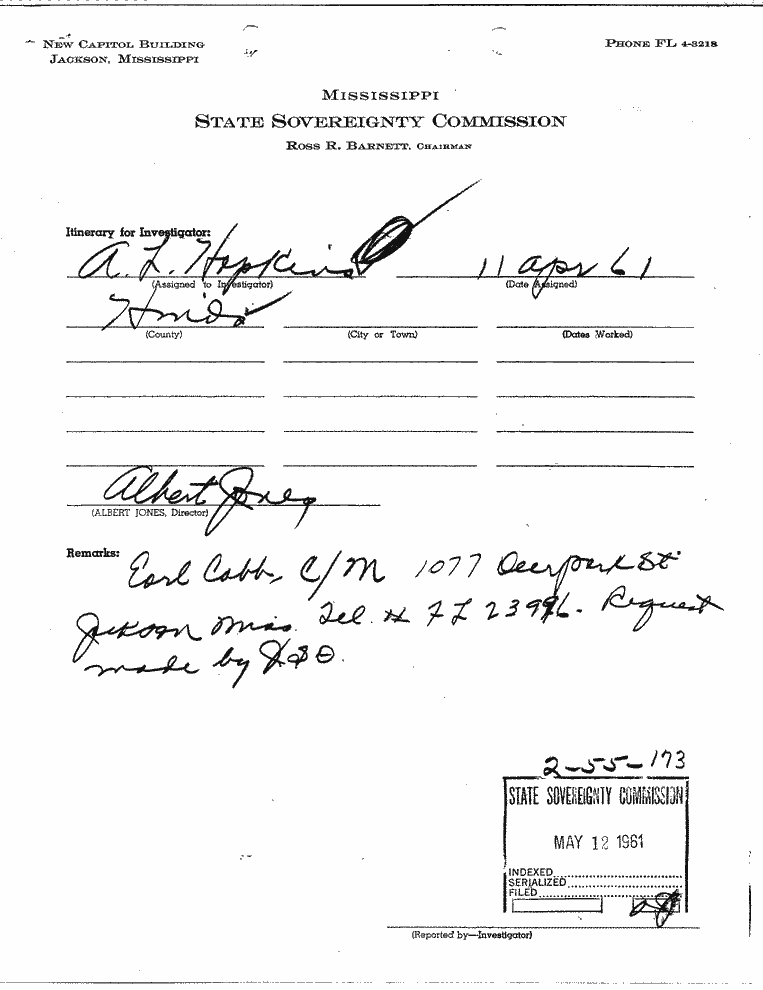 NEW CAPITOL BUILDING
JACKSON, MISSISSIPPI
PHONE FL 4-3218
MISSISSIPPI
STATE SOVEREIGNTY COMMISSION
ROSS R. BARNETT, CHAIRMAN
Itinerary for Investigator:
A. L. Hopkins 11 Apr 61
(Assigned to Investigator) (Date Assigned)
Hinds
(County) (City or Town) (Dates Worked)
Albert Jones
(ALBERT JONES, Director)
Remarks: Earl Cobb, C/M 1077 Deerpark St
Jackson Miss. Tel. # FL 23996. Request
made by
2-55-173
STATE SOVEREIGNTY COMMISSION
MAY 12 1961
INDEXED
SERIALIZED
FILED
(Reported by—Investigator)